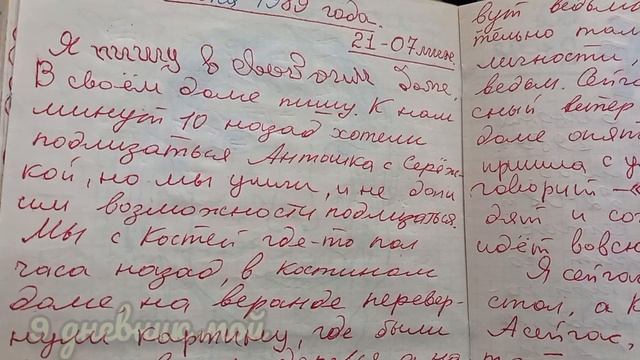 1989 года.
21-07 мин.
Я пишу в своём доме.
В своём доме пишу. К нам
минут 10 назад хотели
подлизаться Антошка с Серёж-
кой, но мы ушли, и не дали
им возможности подлизаться.
Мы с Костей где-то пол
часа назад, в костином
доме на веранде перевер-
нули картину, где были
я дневник мой
вут ведьмы
тельно
личности,
ведьм.
сный ветер
доме опят
пришла с у
говорит –
дят и со
идёт вовсю
Я сейчас
стол, а
А сейчас,